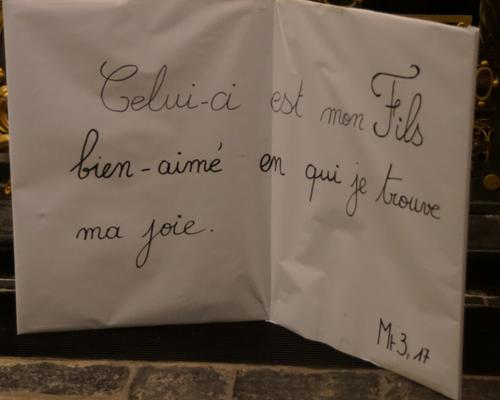 Celui-ci est mon Fils
bien-aimé en qui je trouve
ma joie.
Mt 3, 17